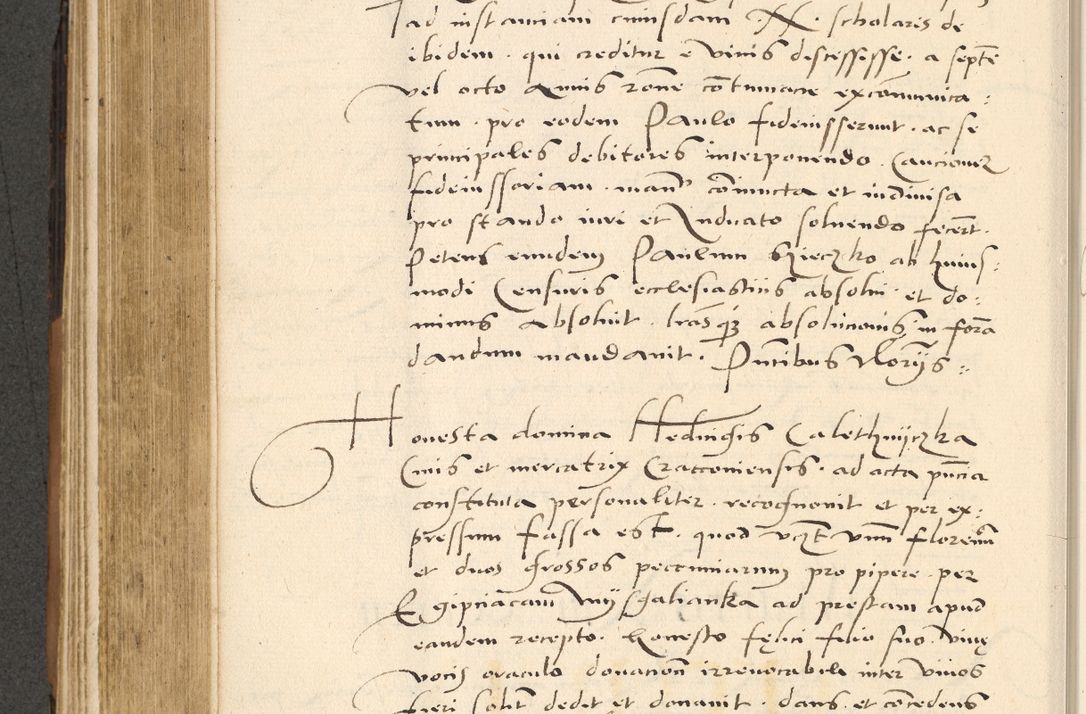 ad instanciam cuiusdam N. scholaris de
ibidem. qui creditur e vivis discessisse. a septē
vel octo annis rōne cōtumacie excōmunica:
tum. pro eodem Paulo fideiusserunt. ac se
principales debitores interponendo. Caucionē
fideiussoriam. manu cōniuncta et indivisa
pro stando iuri et Iudicato solvendo fecert.
Petens eundem Paulum ab huius:
modi Censuris ecclesiasticis absolvi et do:
minus absolvit. lrasq3 absolucionis in forā
dandum mandavit. Pntibus Notarijs::
Honesta domina Hedvigis
Civis et mercatrix Cracoviensis. ad acta pñcia
constituta personaliter. recognovit et per ex:
pressum fassa est. quod unū florenū
et duos grossos pecuniarum pro pipere per
Egipciacam ad prestam apud
eandem recepto. honesto felici filio suo. vive
vocis oraculo donacione irrevocabili inter vivos
fieri solit dedit et donavit. dans et cōcedens